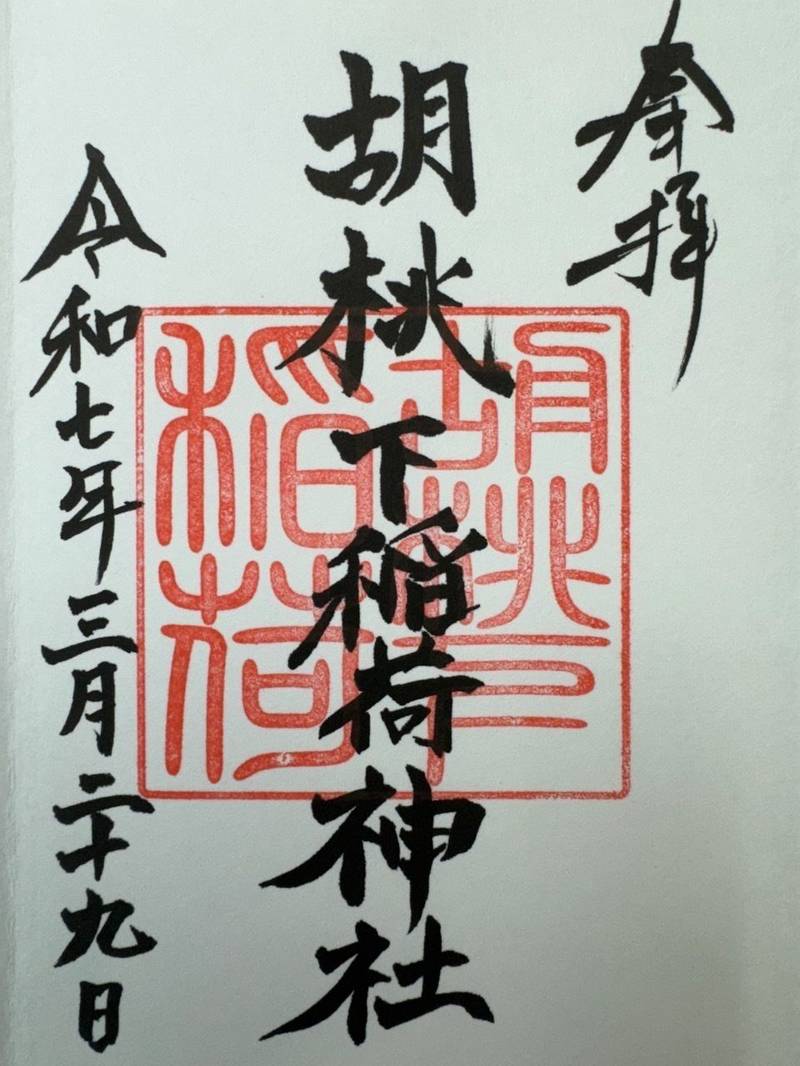 奉拝
胡桃下稲荷神社
胡桃下
稲荷
令和七年三月二十九日